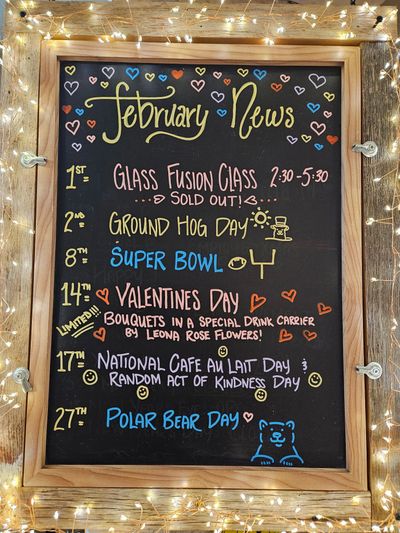 February News
1ST GLASS FUSION CLASS 2:30-5:30
SOLD OUT!
2ND GROUND HOG DAY
8TH SUPER BOWL
14TH VALENTINES DAY
LIMITED!!! BOUQUETS IN A SPECIAL DRINK CARRIER
BY LEONA ROSE FLOWERS!
17TH NATIONAL CAFE AU LAIT DAY &
RANDOM ACT OF KINDNESS DAY
27TH POLAR BEAR DAY